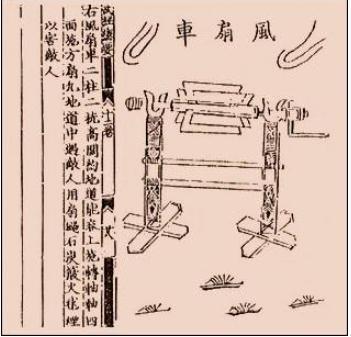 風扇車
武經總要
十卷
右風扇車二柱二桄高闊約地道能容上施轉軸軸四
面施方扇凡地道中遇敵人用扇颺石灰簸火毬煙
以害敵人